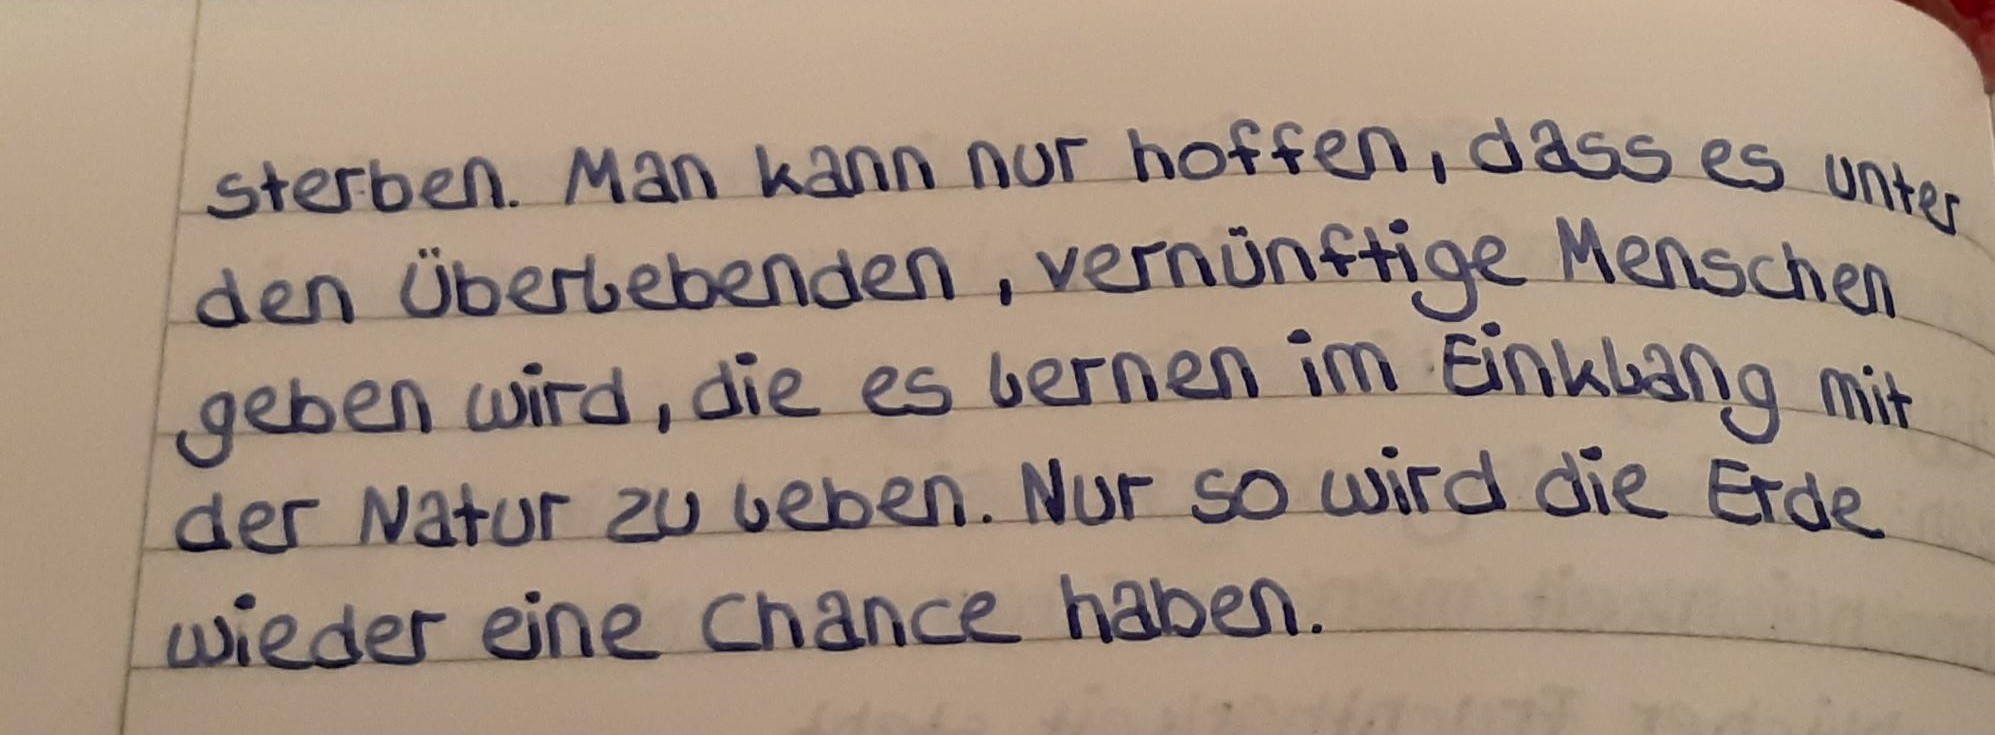 sterben. Man kann nur hoffen, dass es unter
den Überlebenden, vernünftige Menschen
geben wird, die es lernen im Einklang mit
der Natur zu leben. Nur so wird die Erde
wieder eine Chance haben.